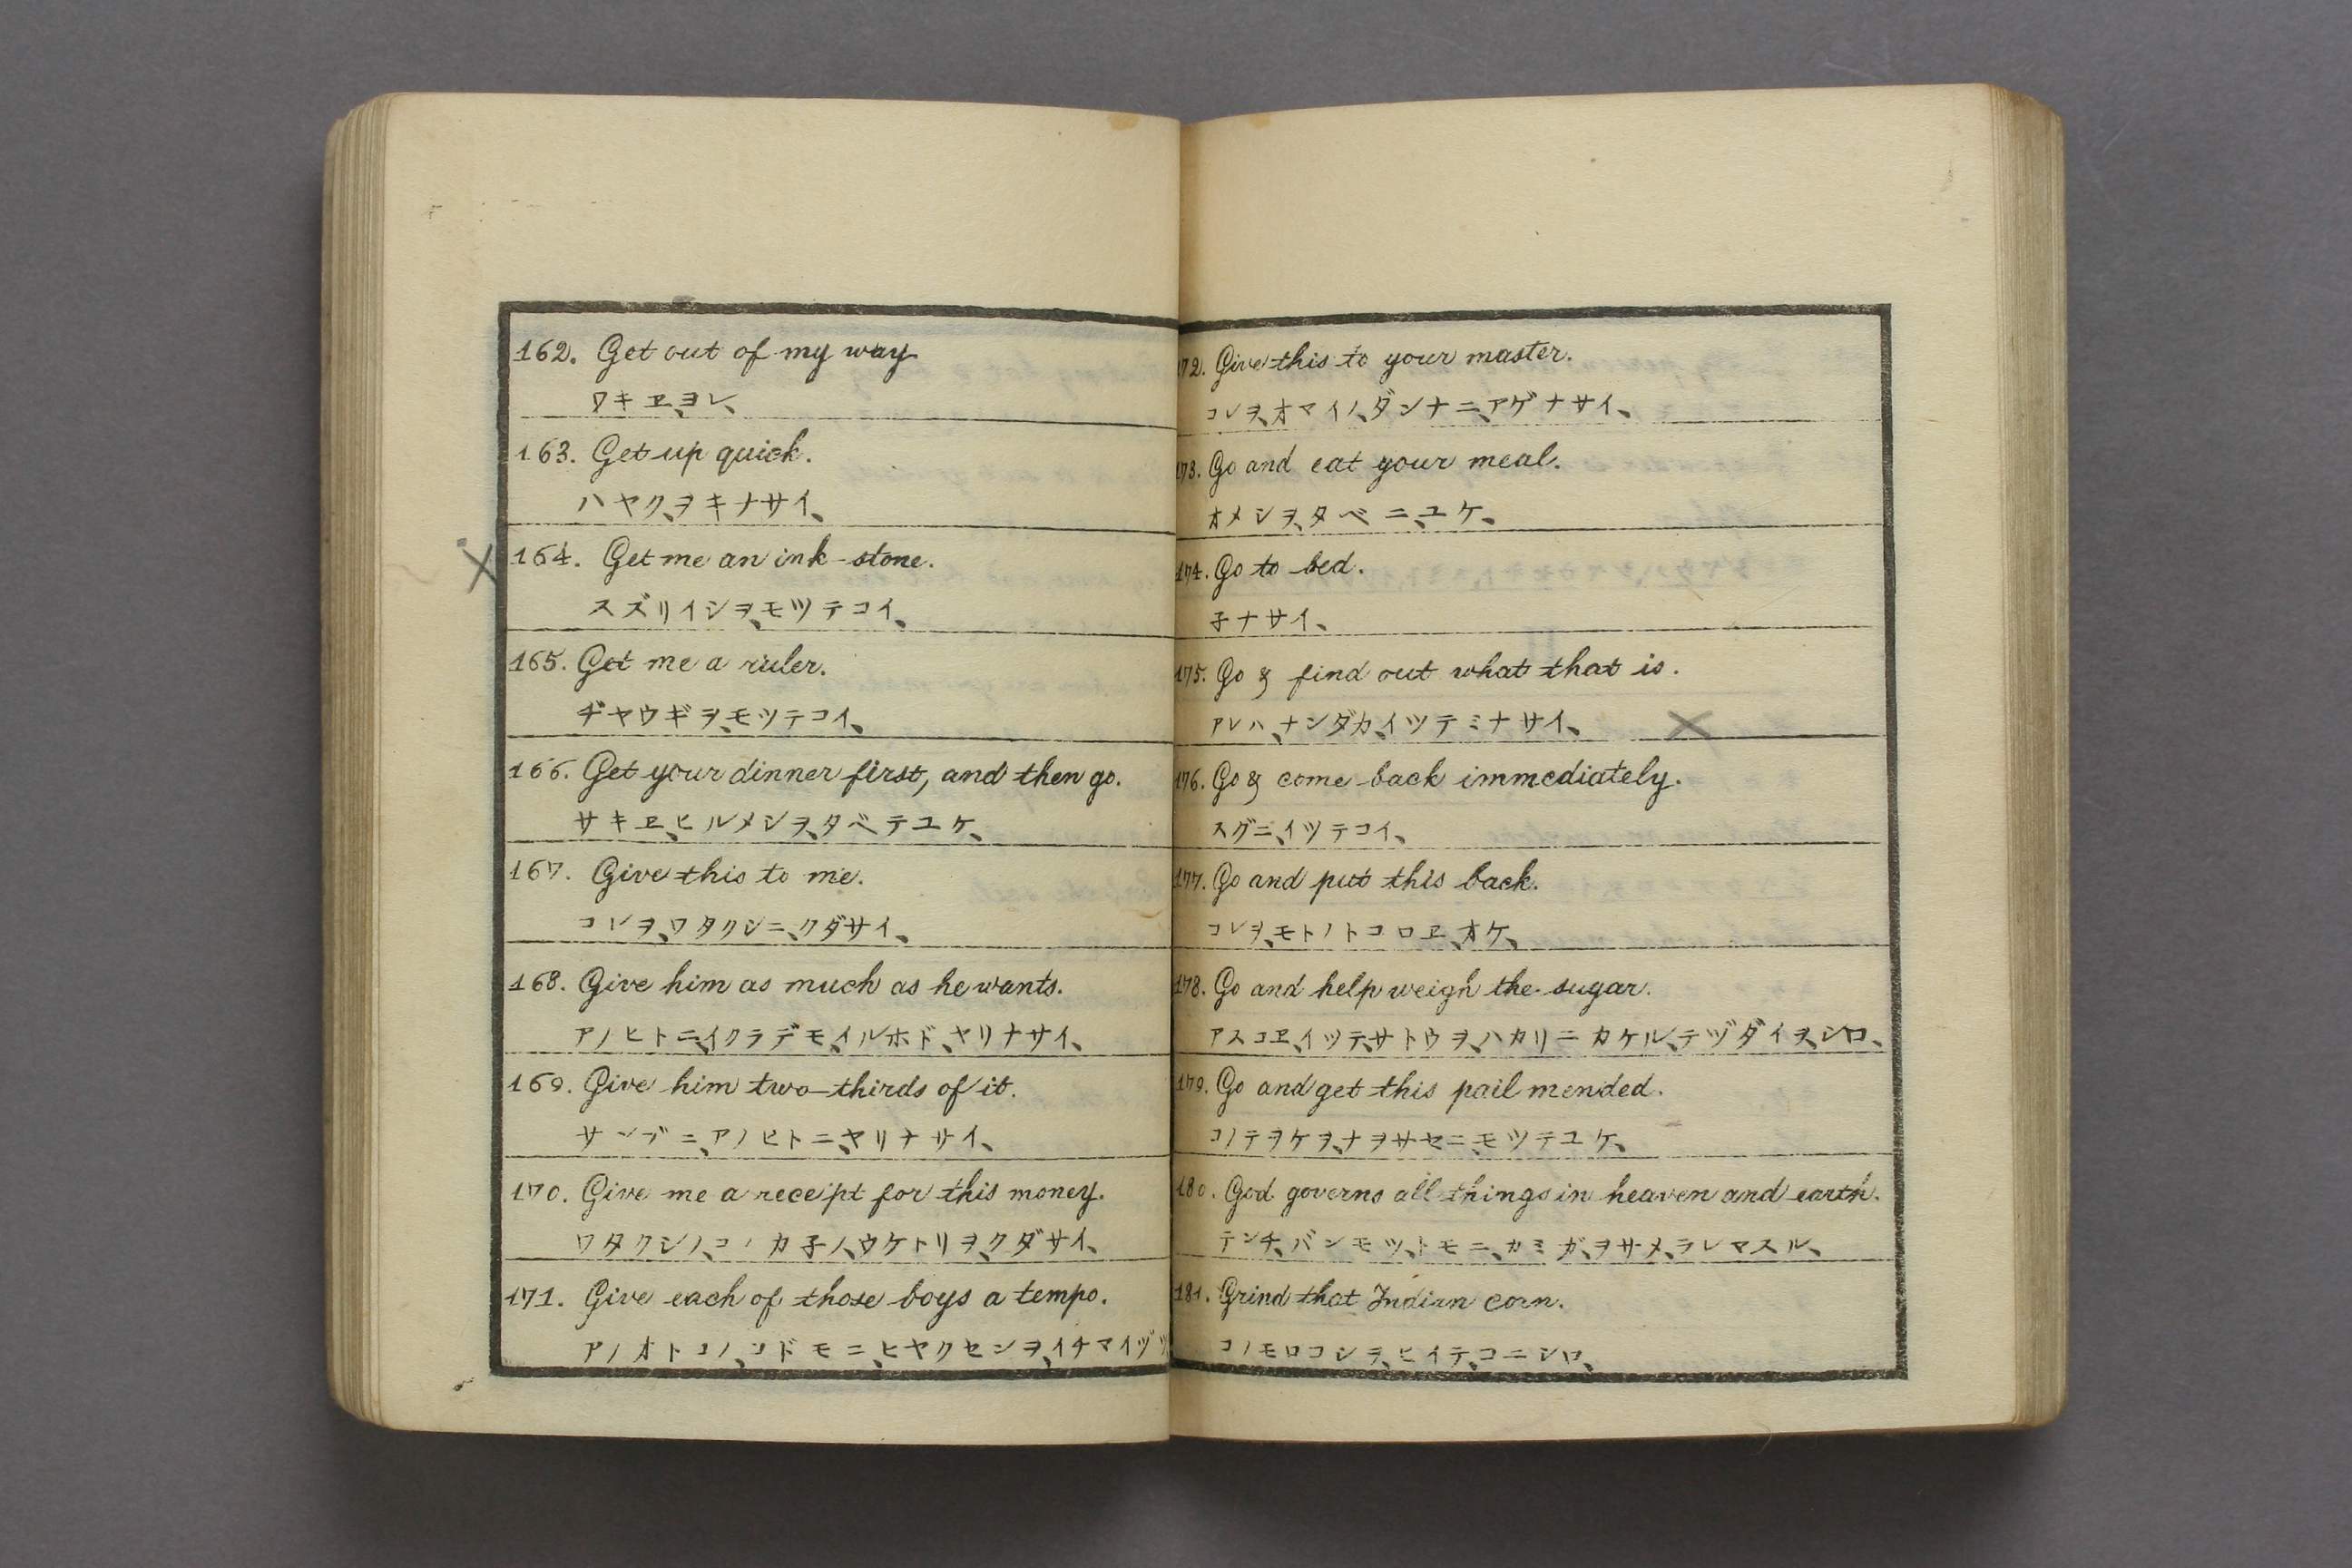 162. Get out of my way
ワキヱ、ヨレ、
163. Get up quick.
ハヤク、ヲキナサイ、
164. Get me an ink-stone.
スズリイシヲ、モツテコイ、
165. Get me a ruler.
ヂヤウギヲ、モツテコイ、
166. Get your dinner first, and then go.
サキヱ、ヒルメシヲ、タベテユケ、
167. Give this to me.
コレヲ、ワタクシニ、クダサイ、
168. Give him as much as he wants.
アノヒトニ、イクラデモ、イルホド、ヤリナサイ、
169. Give him two-thirds of it.
サンブニ、アノヒトニ、ヤリナサイ、
170. Give me a receipt for this money.
ワタクシノ、コノカ子ノ、ウケトリヲ、クダサイ、
171. Give each of those boys a tempo.
アノオトコノ、コドモニ、ヒヤクセンヲ、イチマイヅツ
172. Give this to your master.
コレヲ、オマイノ、ダンナニ、アゲナサイ、
173. Go and eat your meal.
オメシヲ、タベニ、ユケ、
174. Go to bed.
子ナサイ、
175. Go & find out what that is.
アレハ、ナンダカ、イツテミナサイ、
176. Go & come back immediately.
スグニ、イツテコイ、
177. Go and put this back.
コレヲ、モトノトコロヱ、オケ、
178. Go and help weigh the sugar.
アスコヱ、イツテ、サトウヲ、ハカリニカケル、テヅダイヲ、シロ、
179. Go and get this pail mended.
コノテヲケヲ、ナヲサセニ、モツテユケ、
180. God governs all things in heaven and earth.
テンチ、バンモツ、トモニ、カミガ、ヲサメ、ラレマスル、
181. Grind that Indian corn.
コノモロコシヲ、ヒイテ、コニシロ、